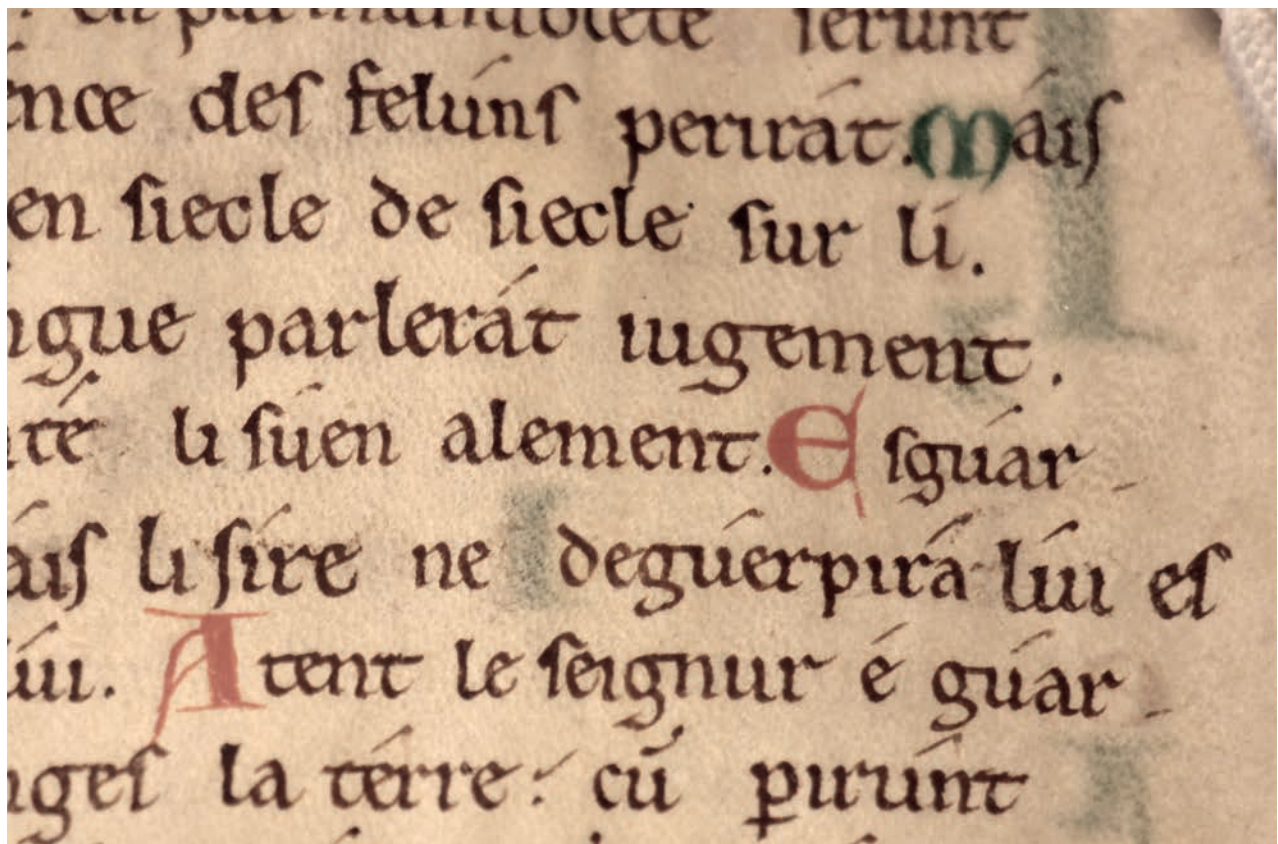 en parmanabletéted serunt
ence des feluns perirat. Mais
en siecle de siecle sur li.
ngue parlerat iugement.
té li súen alement. Esguar-
ais li sire ne deguerpirá lúi es
lúi. Atent le seignur é guar-
nges la térre: cū ꝑirúnt